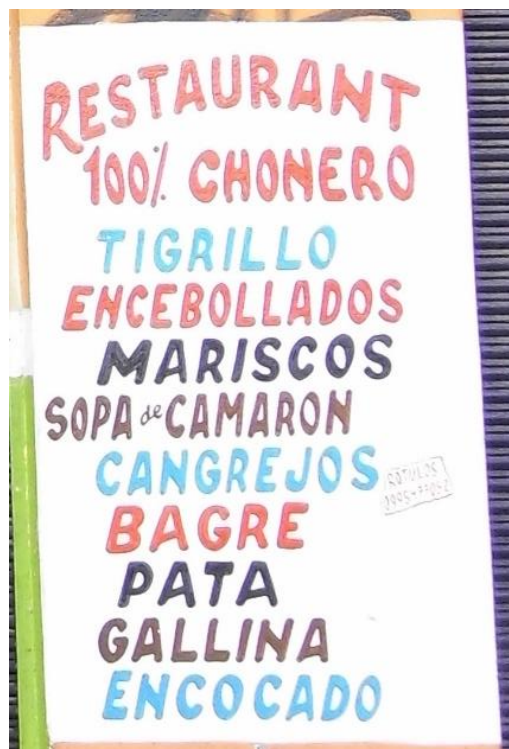 RESTAURANT
100% CHONERO
TIGRILLO
ENCEBOLLADOS
MARISCOS
SOPA de CAMARON
CANGREJOS
RÓTULOS
BAGRE
PATA
GALLINA
ENCOCADO